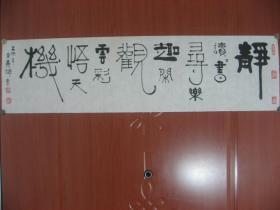 靜讀書尋樂趣閑觀雲彩悟天機